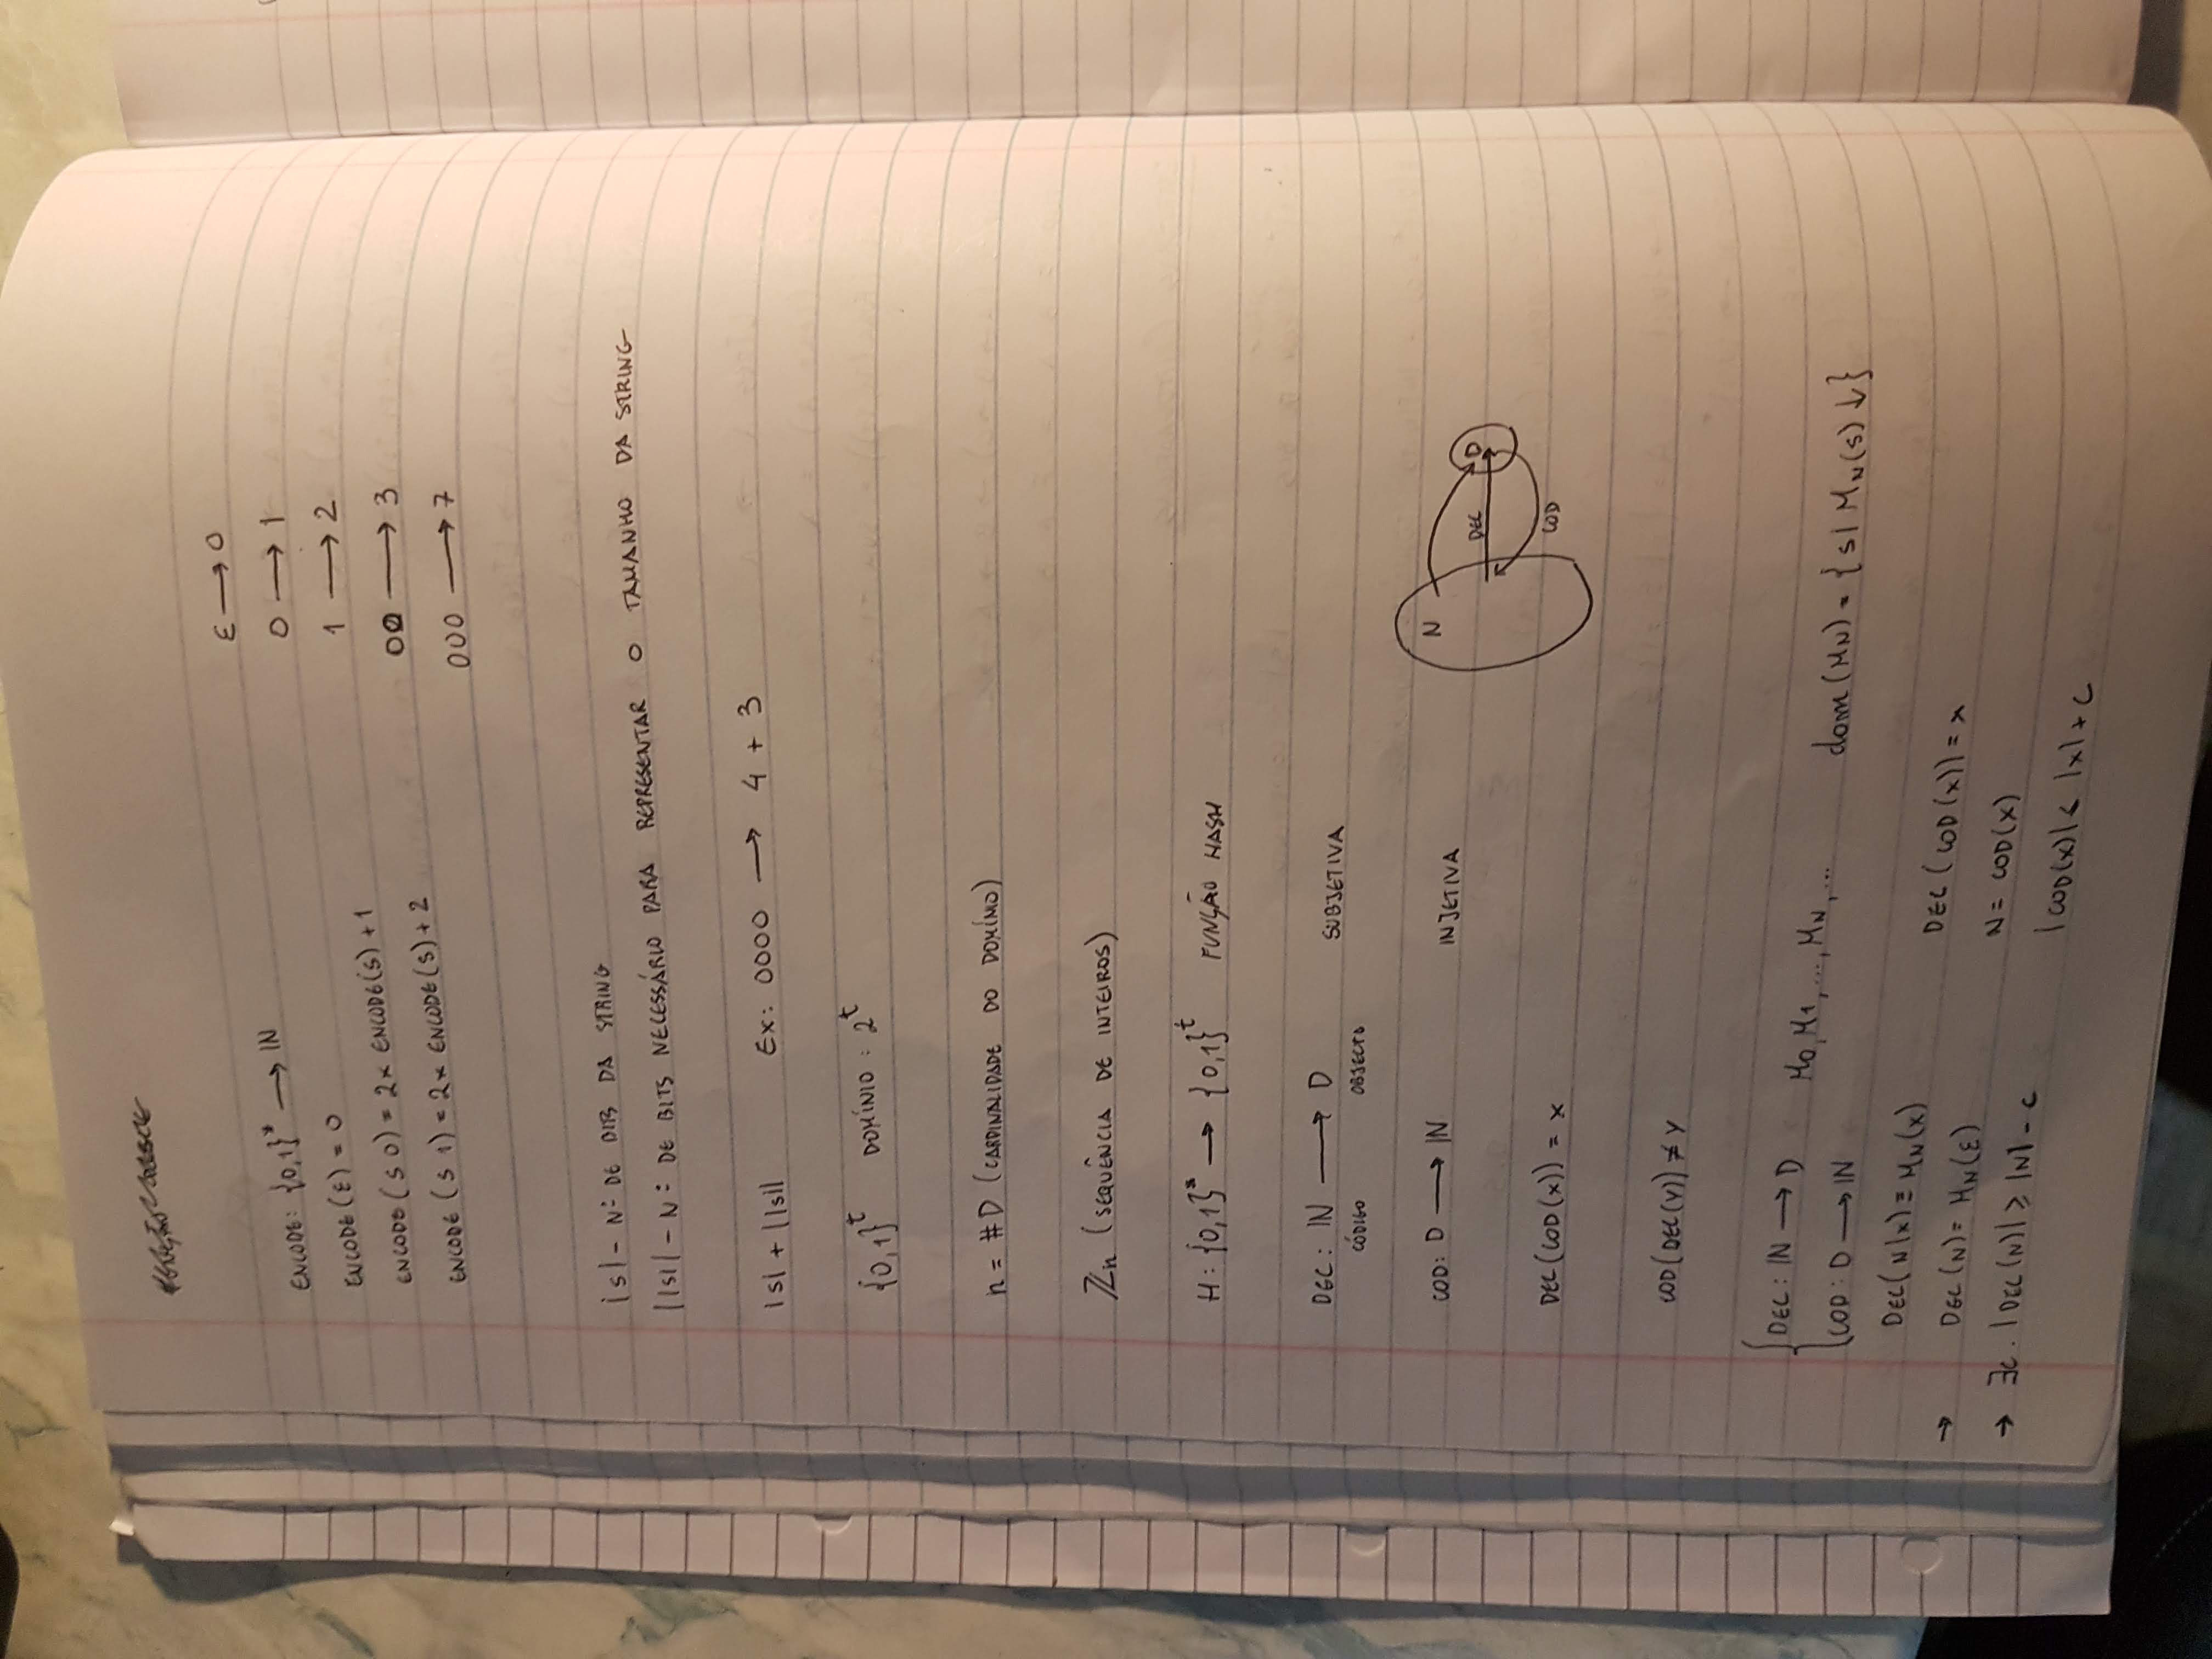 ENCODE: {0,1}* → IN
ε → 0
ENCODE(ε) = 0
0 → 1
ENCODE(S 0) = 2× ENCODE(S) + 1
1 → 2
ENCODE(S 1) = 2× ENCODE(S) + 2
00 → 3
000 → 7
|S| - Nº DE BITS DA STRING
||S|| - Nº DE BITS NECESSÁRIO PARA REPRESENTAR O TAMANHO DA STRING
|S| + ||S|| Ex: 0000 → 4 + 3
{0,1}^t DOMÍNIO: 2^t
n = #D (CARDINALIDADE DO DOMÍNIO)
ℤn (SEQUÊNCIA DE INTEIROS)
H: {0,1}* → {0,1}^t FUNÇÃO HASH
DEC: IN → D SUBJETIVA
CÓDIGO OBJECTO
COD: D → IN INJETIVA
N DEC D
COD
DEC(COD(X)) = X
COD(DEC(Y)) ≠ Y
{DEC: IN → D M0, M1, ..., MN, ... dom(MN) = {S| MN(S) ↓}
COD: D → IN
DEC(N|X) ≡ MN(X)
DEC(COD(X)) = X
→ DEC(N) = MN(ε)
N = COD(X)
→ ∃c. |DEC(N)| ≥ |N| - C
|COD(X)| ≤ |X| + C